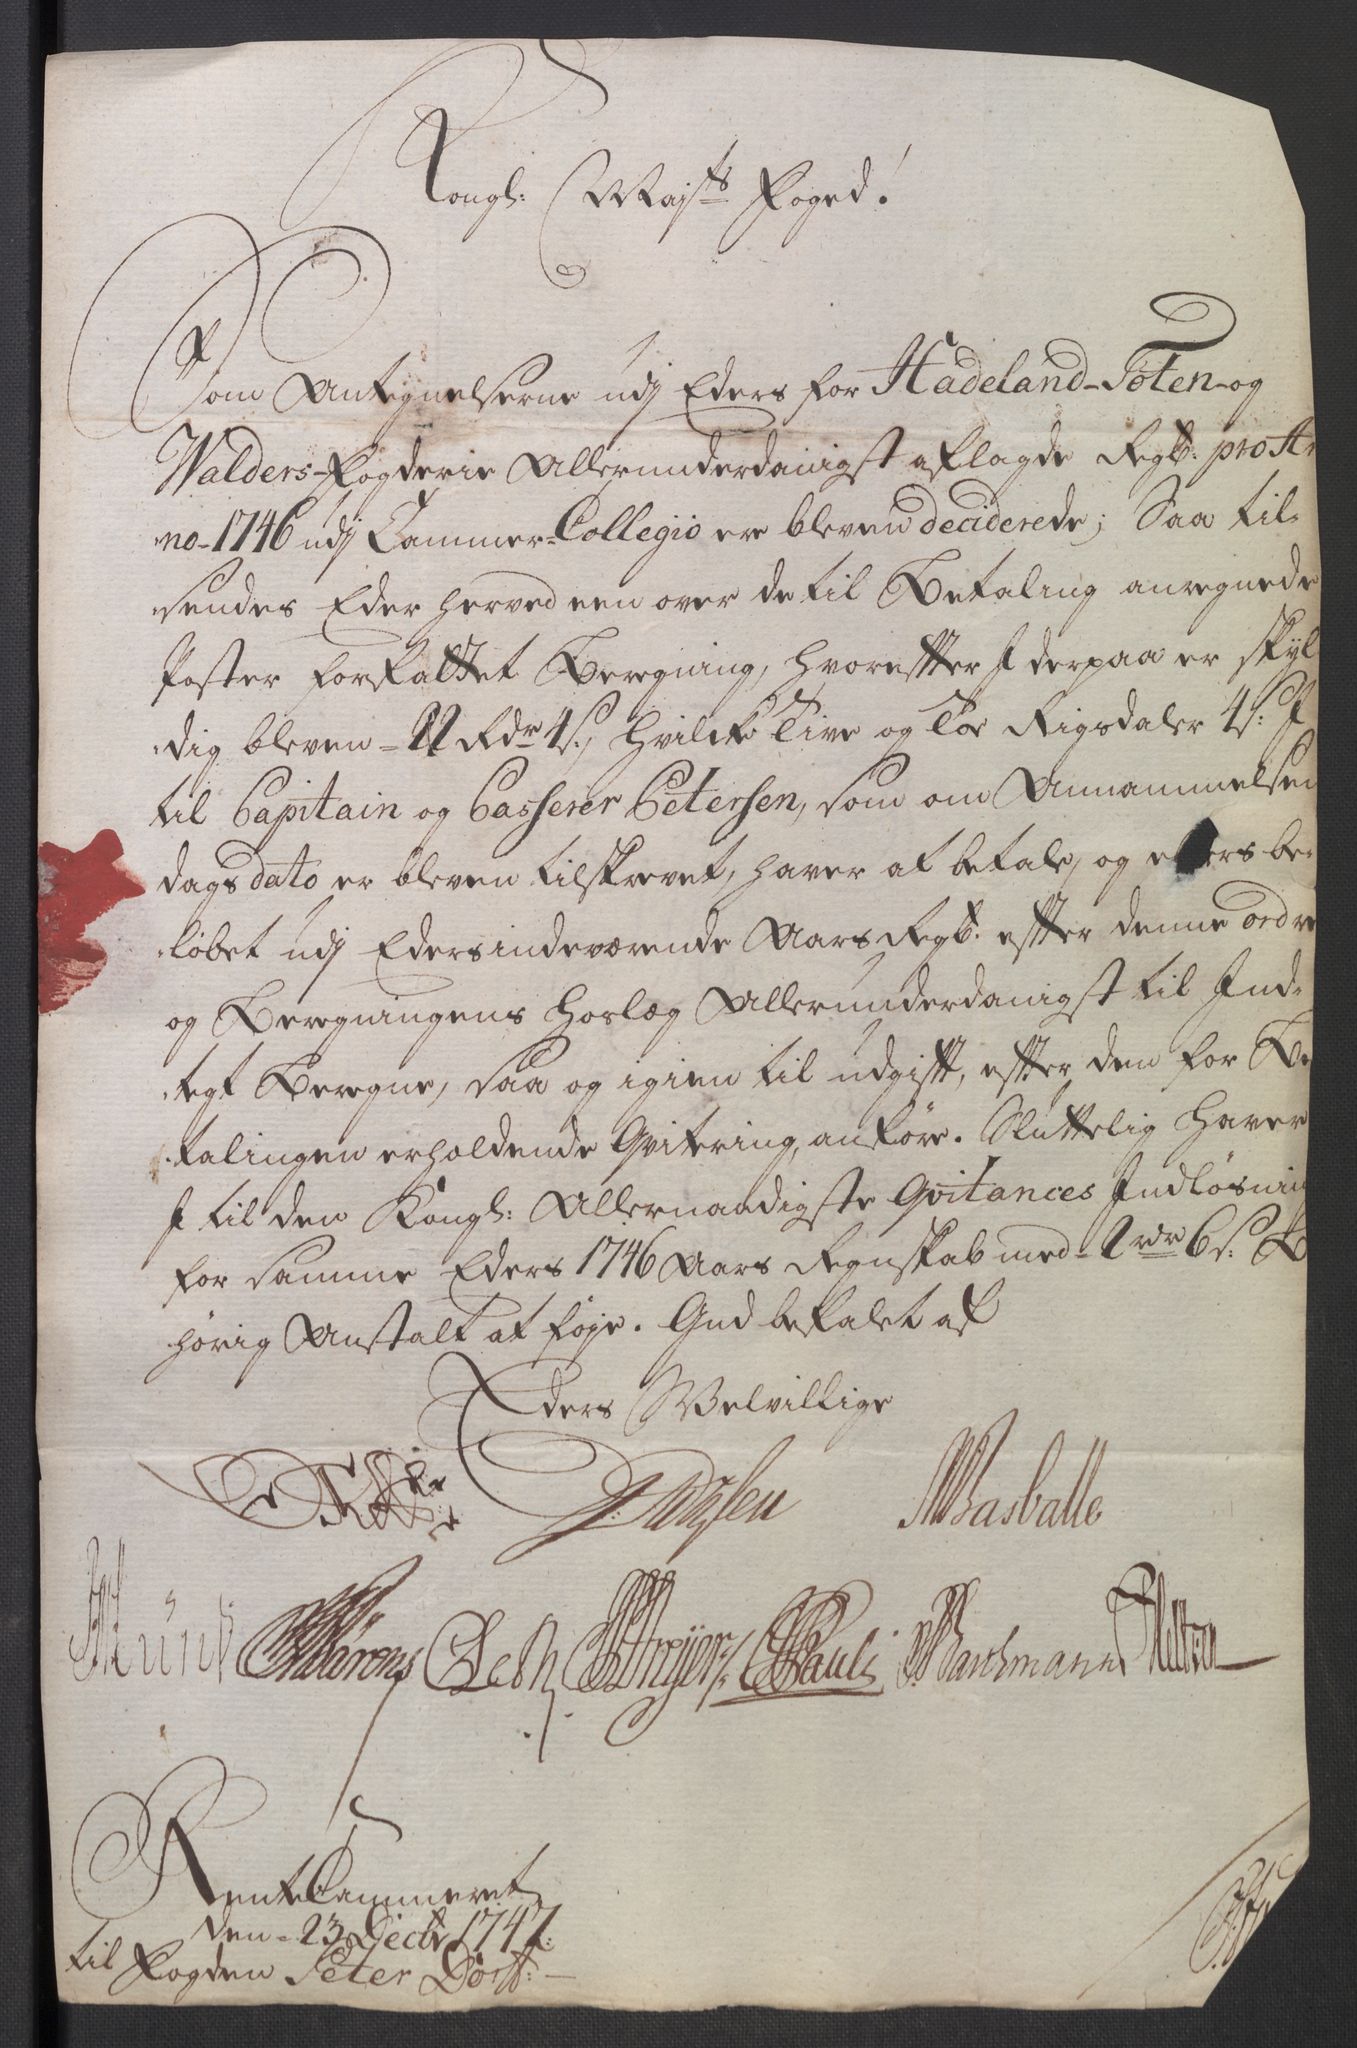 Kongl: Mayts Foged!
Som Antegnelserne udj Eders for Hadeland-Toten-og
Walders-Fogderie Allerunderdanigst aflagde Regsk: pro An
no-1746 udj Cammer-Collegio ere bleven deciderede; Saa til-
sendes Eder herved een over de til Betaling anregnede
Poster forfattet Beregning, hvorefter I derpaa er skyl
dig bleven - 22 Rdr 4 s:, hvilke Tive og Toe Rigsdaler 4 s: I
til Capitain og Casserer Petersen, som om Annammelsen
dags dato er bleven tilskrevet, haver at betale, og ellers be-
løbet udj Eders indeværende Aars Regsk: efter denne ordre
og Beregningens hoslæg Allerunderdanigst til Ind-
tegt Beregne, saa og igien til udgift, efter den for Be
talingen erholdende Qvitering, anføre. Sluttelig haver
I til den Kongl: Allernaadigste Qvitances Indløsning
for samme Eders 1746 Aars Regnskab med - 2 rdr 6 s: Be
hörig Anstalt at føje. Gud befalet af
Eders Velvillige
Basballe
Pauli
Rente Cammeret
den - 23 Decbr 1747:
til Fogden Peter Dorff: -